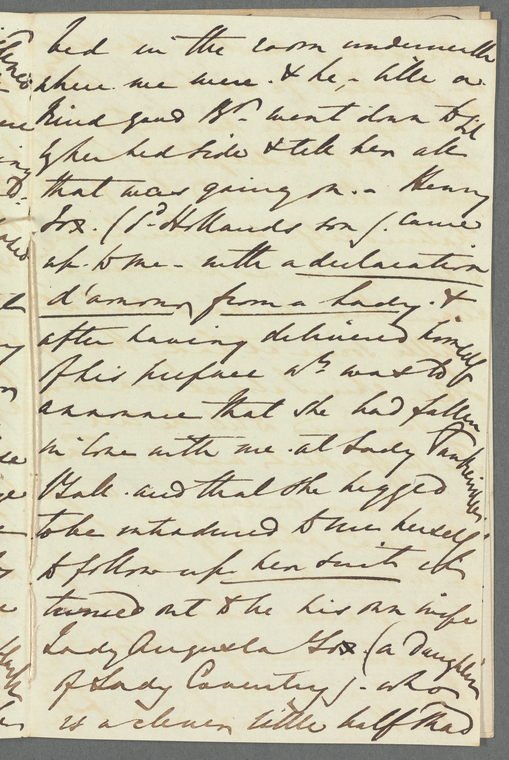 bed in the room underneath
where we were. & he, - like a
kind good Br. went down to sit
by her bed side & tell her all
that was going on. - Henry
Fox. (Ld. Hollands son). came
up to me - with a declaration
d'amour from a Lady. &
after having delivered himself
of his preface wh. was to
announce that she had fallen
in love with me at Lady Tankerville's
Ball. and that she begged
to be introduced to me herself
to follow up her suit wh
turned out to be his own wife
Lady Augusta Fox. (a daughter
of Lady Coventry). who
is a clever little half mad